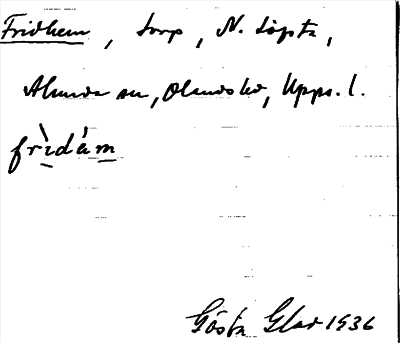 Fridhem, torp, N. Löpsta,
Almunda sn, Olands hd, Upps. l.
frìdám
Gösta Glar 1936